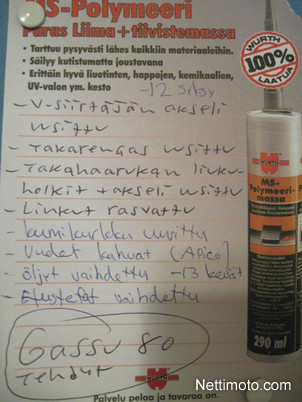 MS-Polymeeri
Paras Liima + tiivistemassa
• Tarttuu pysyvästi lähes kaikkiin materiaaleihin.
• Säilyy kutistumatta joustavana
• Erittäin hyvä liuotinten, happojen, kemikaalien,
UV-valon ym. kesto
WÜRTH
100%
LAATUA
-12 syksy
- V-siirtäjän akseli
uusittu
- Takarengas uusittu
- Takahaarukan liuku
holkit + akseli uusittu
- Linkut rasvattu
- kumikurkku uusittu
- Uudet kahvat (Apico)
- öljyt vaihdettu -13 kevät
- Etustefat vaihdettu
Gassu 80
tehdyt
WÜRTH
MS-
Polymeeri-
massa
290 ml
WÜRTH
Palvelu pelaa ja tavaraa on.
Nettimoto.com